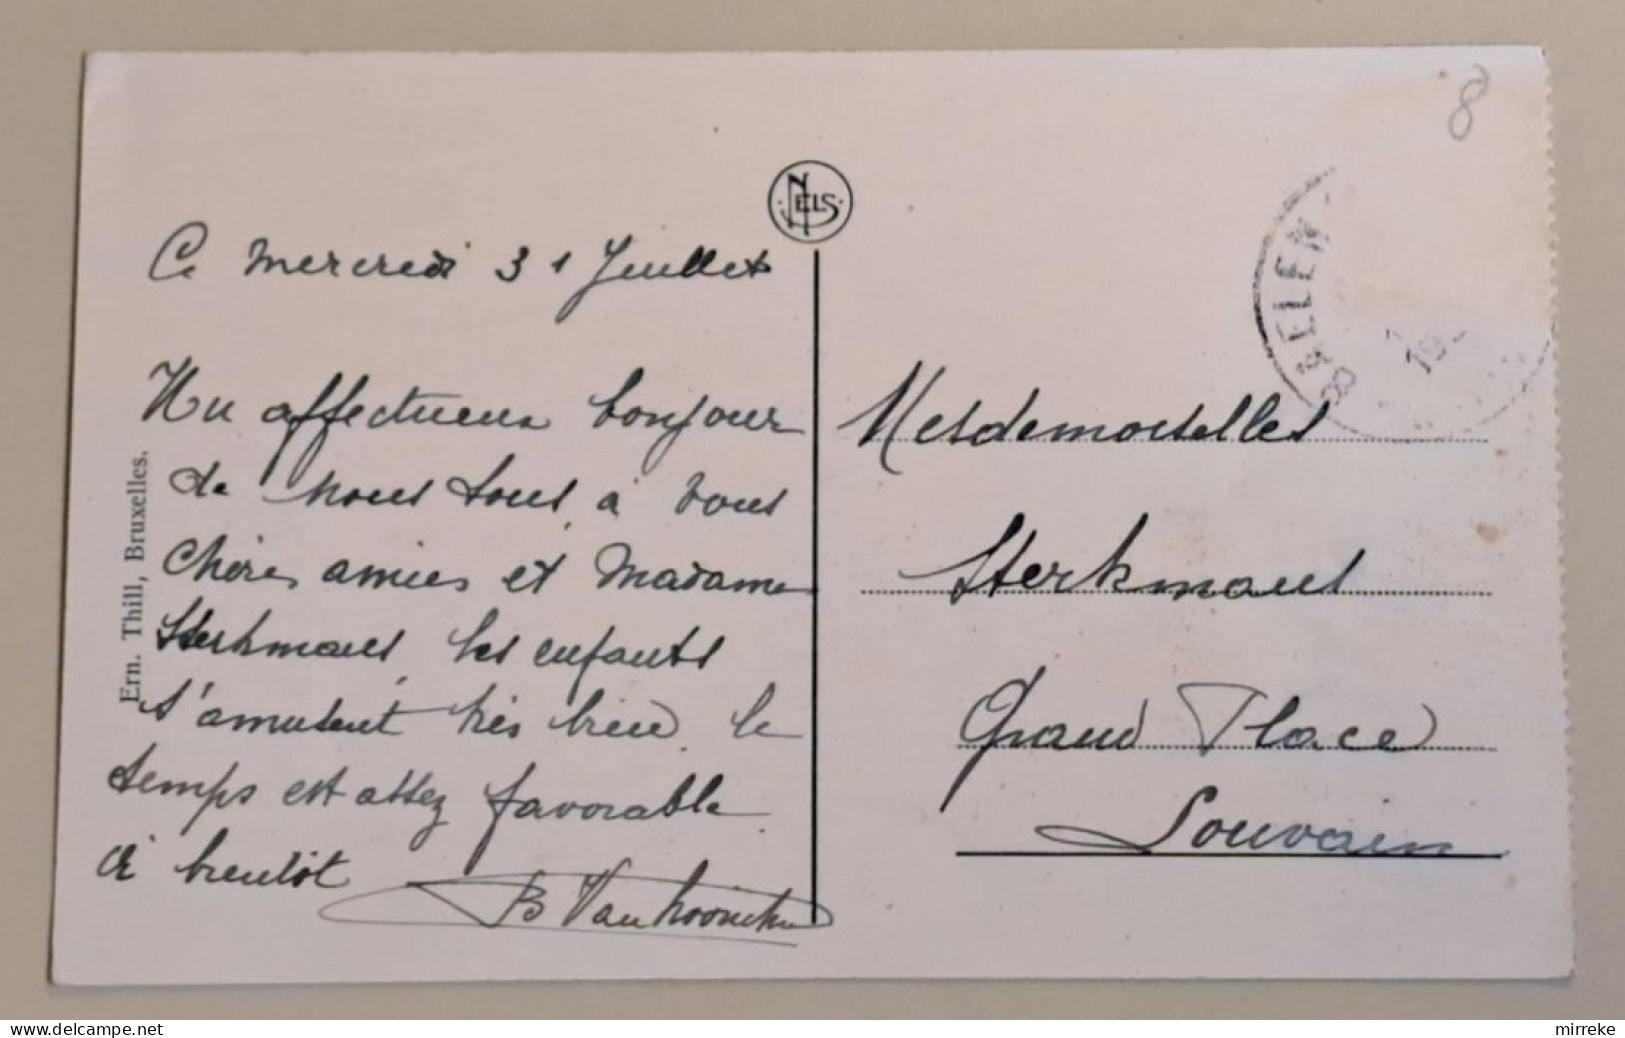 8
NELS
BRELEN
19
Ce Mercredi 31 Juillet
Un affectueux bonjour
de nous tous, à vous
Chères amies et Madame
Sterkmans, les enfants
s'amusent très bien, le
temps est assez favorable.
à bientôt
B Van
Ern. Thill, Bruxelles.
Mesdemoiselles
Sterkmans
Grand Place
Louvain
www.delcampe.net
mirreke